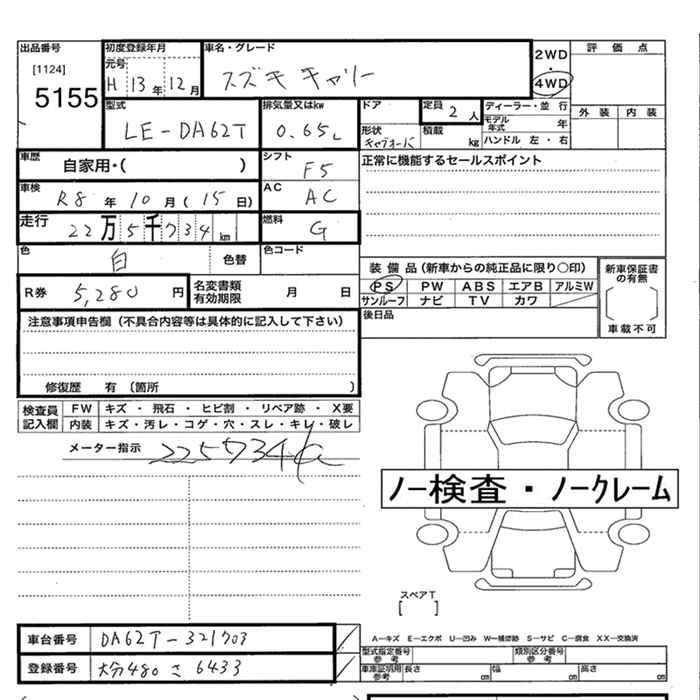 出品番号
[1124]
5155
初度登録年月
元号
H 13年 12月
車名・グレード
スズキ キャリー
2WD
・
4WD
評価点
外装 内装
型式
LE-DA62T
排気量又はkw
0.65L
ドア
定員
2人
形状
積載
kg
ディーラー・並行
モデル年式
年
ハンドル 左・右
車歴
自家用・( )
シフト
F5
正常に機能するセールスポイント
車検
R8年 10月(15日)
AC
AC
走行
22万5千734km
燃料
G
色
白
色替
色コード
R券
5,280円
名変書類有効期限
月 日
装備品(新車からの純正品に限り○印)
PS PW ABS エアB アルミW
サンルーフ ナビ TV カワ
新車保証書の有無
車載不可
後日品
注意事項申告欄(不具合内容等は具体的に記入して下さい)
修復歴 有(箇所 )
検査員記入欄
FW キズ・飛石・ヒビ割・リペア跡・X要
内装 キズ・汚レ・コゲ・穴・スレ・キレ・破レ
メーター指示
225734
ノー検査・ノークレーム
スペアT
[ ]
車台番号
DA62T-321703
登録番号
大分480 さ 6433
A−キズ E−エクボ U−凹み W−補修跡 S−サビ C−腐食 XX−交換済
型式指定番号
参考
類別区分番号
参考
車庫証明用
参考
長さ cm 幅 cm 高さ cm